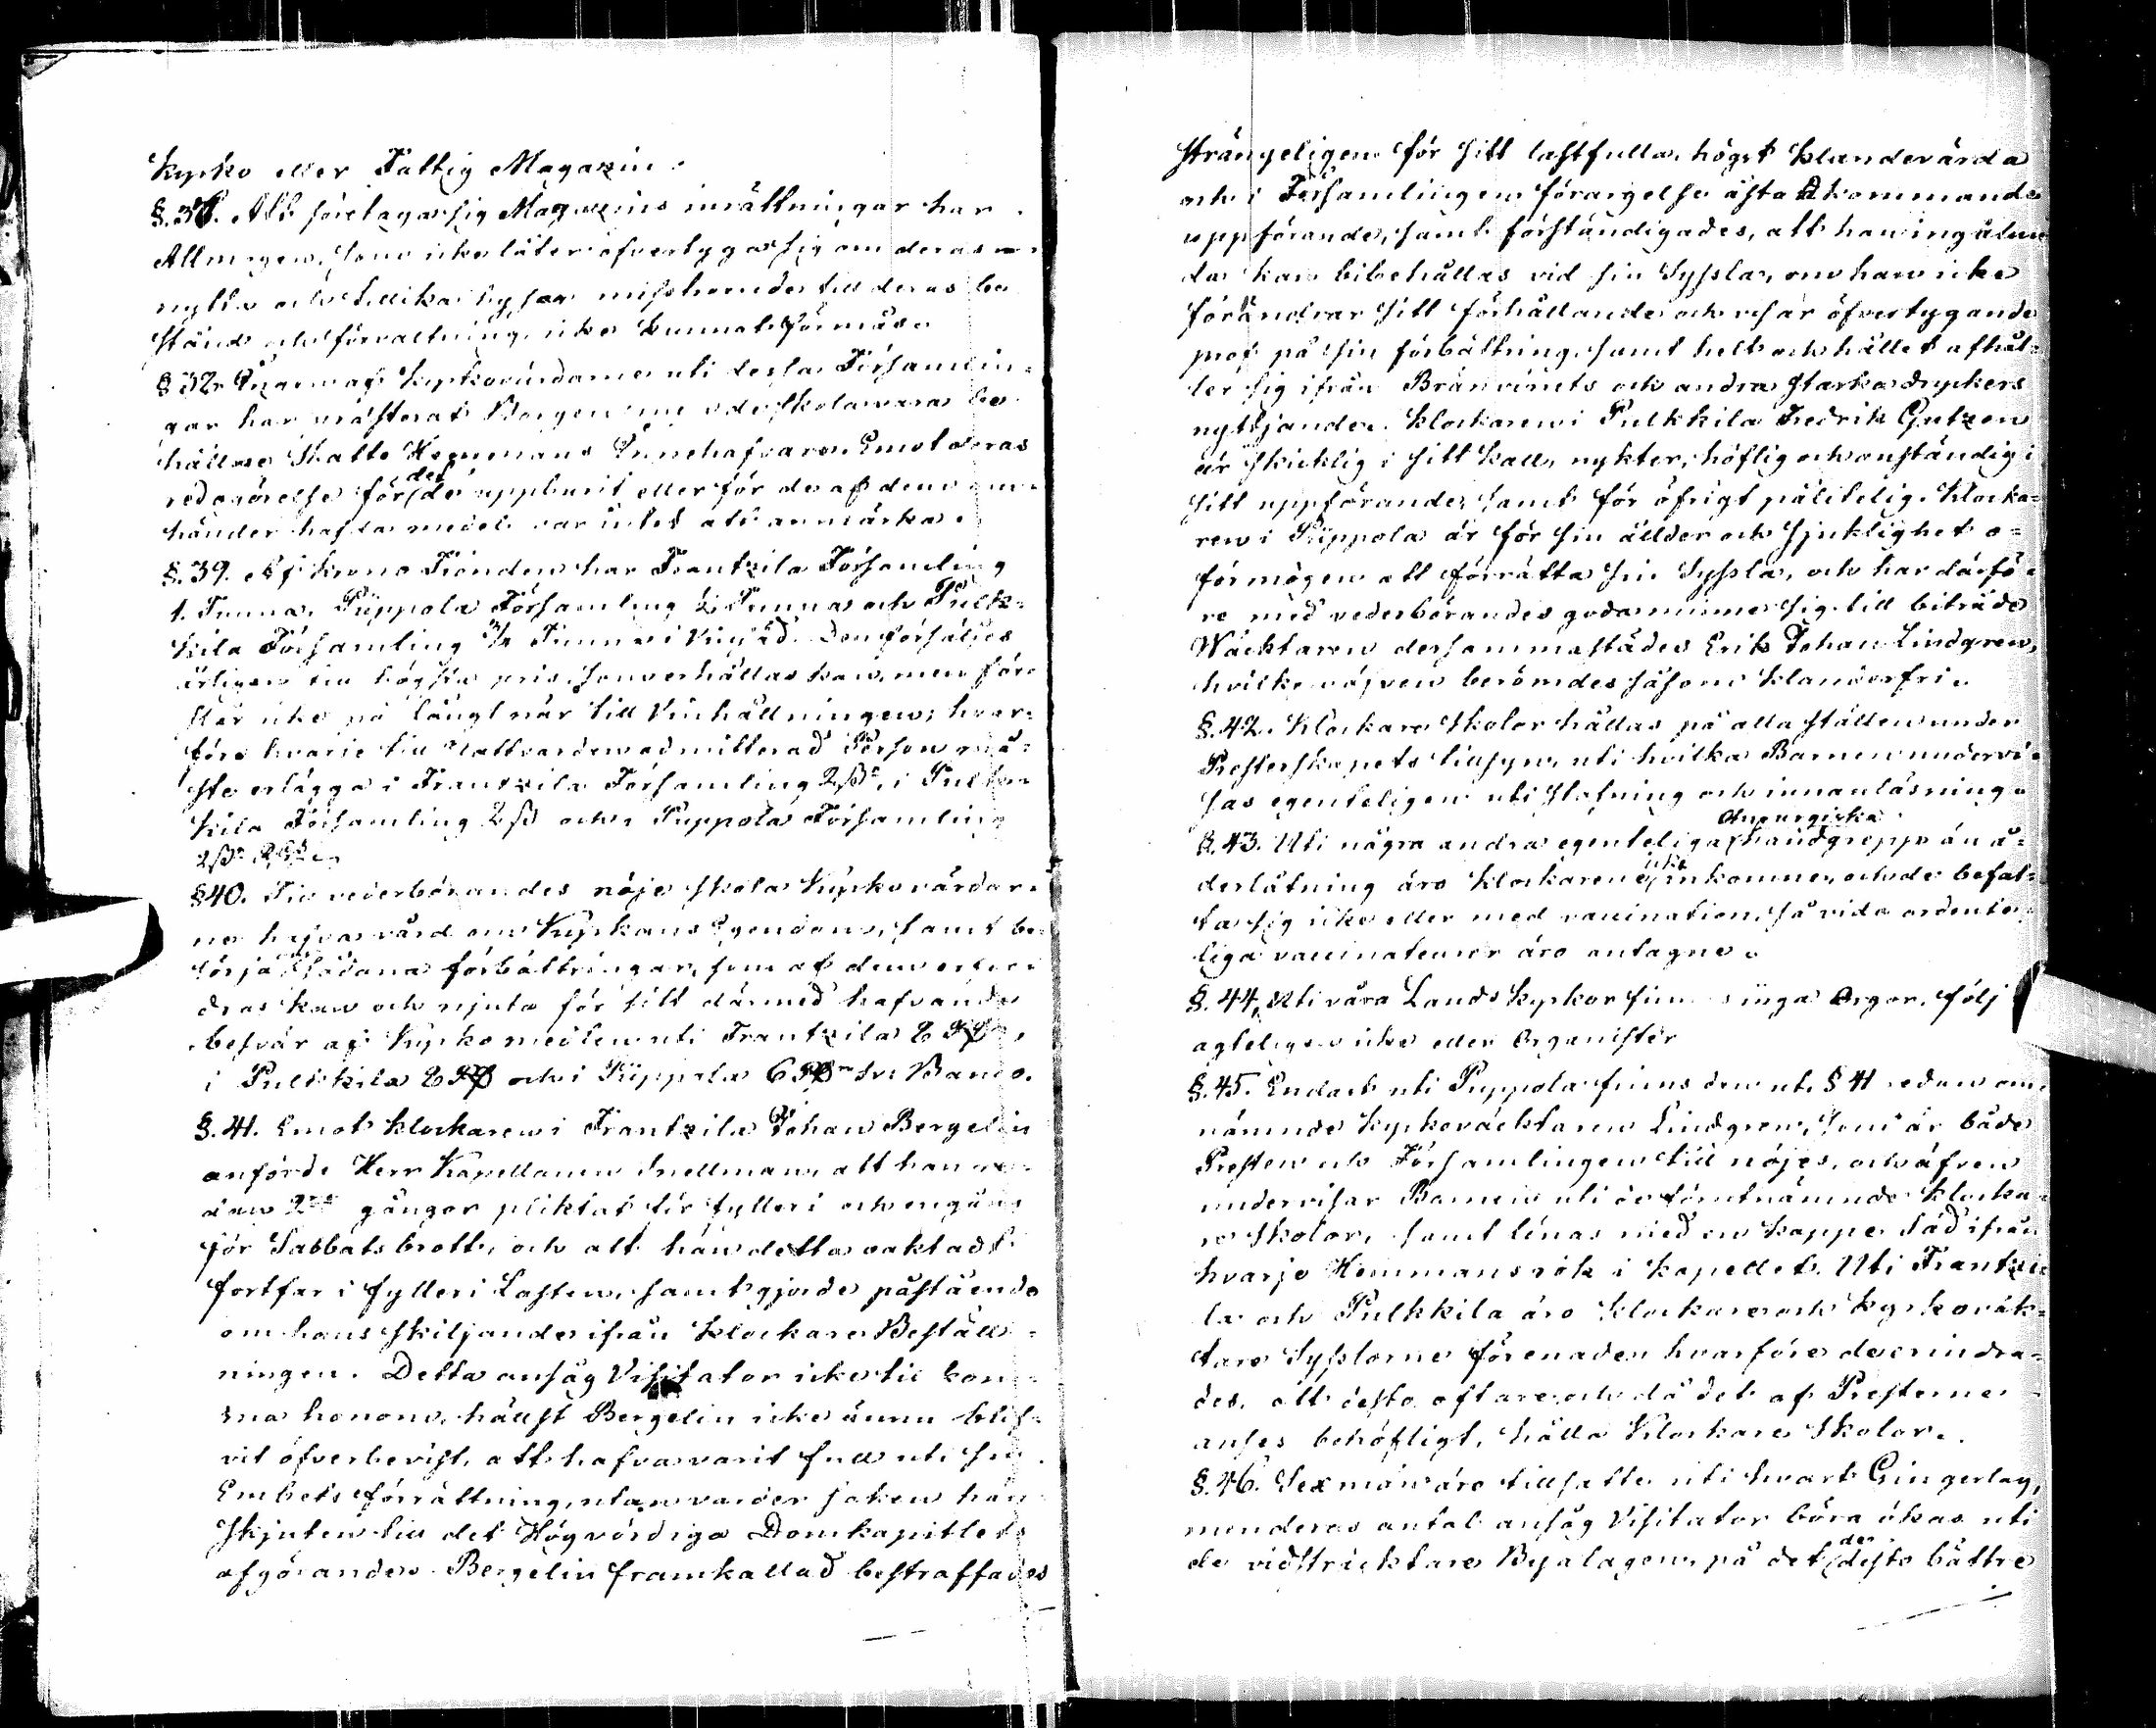 Kyrko eller Fattig Magazin.
§. 37. Att företaga sig Magazins inrättningar har
Allmogen, som icke låter öfvertyga sig om deras
nytta och tillika hyser misstroende till deras be
stånd och förvaltning, icke kunnat förmås.
§ 38. Ingen af Kyrkovärdarne uti dessa Församlin-
gar har præsterat Borgen, men de skola vara be
hållne Skatte Hemmans Innehafvare. Emot deras
redogörelse för det de uppburit eller för de af dem om
händer hafda medel var intet att anmärka.
§. 39. Af Krono Tionden har Frantzila Församling
1. Tunna, Pippola Församling ½ Tunna och Pulk-
kila Församling ½ Tunna i Vinsäd. Den försäljes
årligen till högsta pris, som erhållas kan, men före
slår icke på långt när till Vinhållningen; hvar-
före hvarje till Nattvarden admitterad Person må-
ste erlägga i Frantzila Församling 2 sk, i Pulk-
kila Församling 2 sk och i Pippola Församling
2 sk
§ 40. Till vederbörandes nöje skola Kyrkovärdar-
ne hafva vård om Kyrkans Egendom, samt be-
sörja sådana förbättringar, som af dem erfor
dras kan och njuta för sitt därmed hafvande
besvär af Kyrko medlen uti Frantzila 8
i Pulkkila 8 och i Pippola 6 Banco.
§. 41. Emot Klockaren i Frantzila Johan Bergelin
anförde Herr Kapellanen Snellman, att han re-
dan 2 gånger pliktat för fylleri och en gång
för Sabbatsbrott, och att han detta oaktadt
fortfar i fylleri Lasten, samt gjorde påstående
om hans skiljande ifrån Klockare Beställ-
ningen. Detta ansåg Visitator icke till kom-
ma honom, hällst Bergelin icke ännu blif-
vit öfverbevist, att hafva varit full uti sin
Embets förrättning, utan varder saken hän
skjuten till det Högvördiga Domkapitlets
afgörande. Bergelin framkallad bestraffades
strängeligen för sitt lastfulla, högst klandervärda
och i Församlingen förargelse åstadkommande
uppförande, samt förständigades, att han ingalun
da kan bibehållas vid sin Syssla, om han icke
förändrar sitt förhållande och visar öfvertygande
prof på sin förbättring, samt helt och hållet afhål-
ler sig ifrån Brännvinets och andra starka dryckers
nyttjande. Klockaren i Pulkkila Fredrik Gutzen
är skicklig i sitt kall, nykter, höflig och anständig i
sitt uppförande, samt för öfrigt pålitelig. Klocka-
ren i Pippola är för sin ålder och sjuklighet o-
förmögen att förrätta sin Syssla, och har därfö-
re med vederbörandes godaminne sig till biträde
Wäcktaren dersammastädes Erik Johan Lindgren,
hvilken äfven berömdes såsom klanderfri.
§. 42. Klockare skolor hållas på alla ställen under
Presterskapets tillsyn, uti hvilka Barnen undervi-
sas egenteligen uti stafning och innanläsning.
§. 43. Uti några andra egenteliga Chirurgiska handgrepp än å-
derlåtning äro Klockarene icke inkomne, och de befat-
ta sig icke eller med vaccination, så vida ordente-
liga vaccinateurer äro antagne.
§. 44. Uti våra Lands kyrkor finnas inga Orgor, följ
agteligen icke eller Organister
§. 45. Endast uti Pippola finns den uti § 41 redan om-
nämnde Kyrkoväcktaren Lindgren, som är både
Presten och Församlingen till nöjes, och äfven
undervisar Barnen uti de förutnämnde Klocka-
re skolor, samt lönas med en kappe Säd ifrån
hvarje Hemmans rök i kapellet. Uti Frantzi
la och Pulkkila äro Klockare och Kyrkoväk-
tare Sysslorne förenade, hvarföre de erindra-
des, att desto oftare och då det af Presterne
anses behöfligt, hålla Klockare Skolor.
§. 46. Sexmän äro tillsatte uti hvart Gingerlag,
men deras antal ansåg Visitator böra ökas uti
de vidsträcktare Byalagen, på det de desto bättre